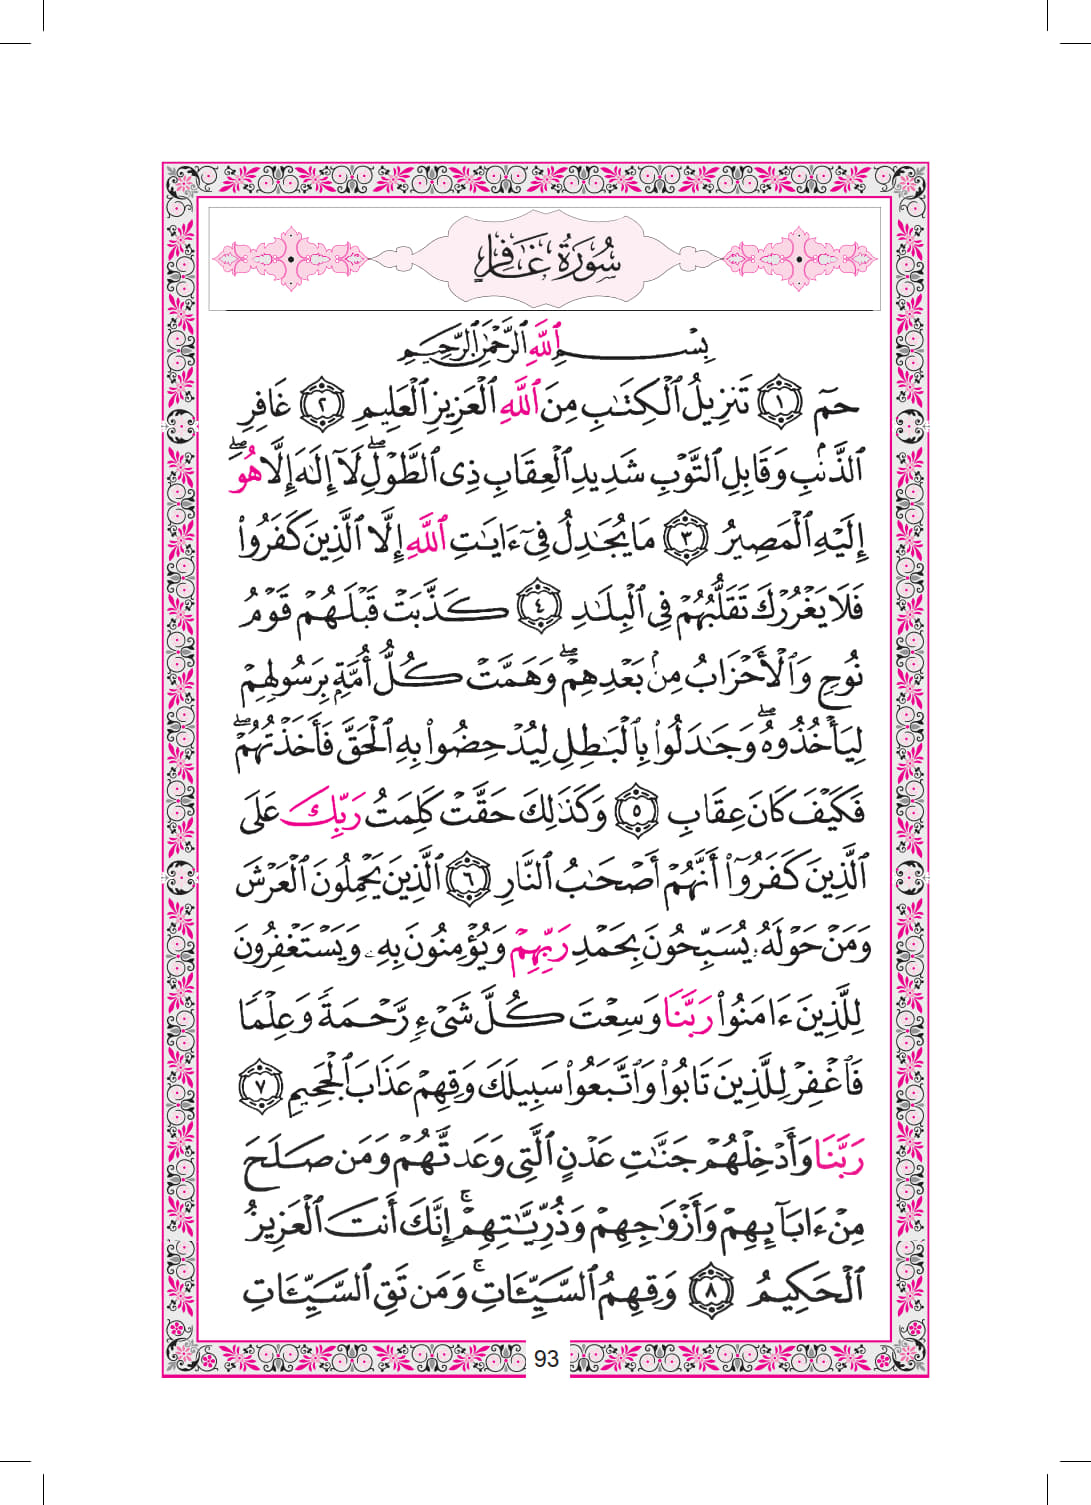 سُورَةُ غَافِرٍ
بِسْمِ ٱللَّهِ ٱلرَّحْمَٰنِ ٱلرَّحِيمِ
حمٓ ١ تَنزِيلُ ٱلْكِتَٰبِ مِنَ ٱللَّهِ ٱلْعَزِيزِ ٱلْعَلِيمِ ٢ غَافِرِ
ٱلذَّنۢبِ وَقَابِلِ ٱلتَّوْبِ شَدِيدِ ٱلْعِقَابِ ذِى ٱلطَّوْلِۖ لَآ إِلَٰهَ إِلَّا هُوَۖ
إِلَيْهِ ٱلْمَصِيرُ ٣ مَا يُجَٰدِلُ فِىٓ ءَايَٰتِ ٱللَّهِ إِلَّا ٱلَّذِينَ كَفَرُوا۟
فَلَا يَغْرُرْكَ تَقَلُّبُهُمْ فِى ٱلْبِلَٰدِ ٤ كَذَّبَتْ قَبْلَهُمْ قَوْمُ
نُوحٍ وَٱلْأَحْزَابُ مِنۢ بَعْدِهِمْۖ وَهَمَّتْ كُلُّ أُمَّةٍۭ بِرَسُولِهِمْ
لِيَأْخُذُوهُۖ وَجَٰدَلُوا۟ بِٱلْبَٰطِلِ لِيُدْحِضُوا۟ بِهِ ٱلْحَقَّ فَأَخَذْتُهُمْۖ
فَكَيْفَ كَانَ عِقَابِ ٥ وَكَذَٰلِكَ حَقَّتْ كَلِمَتُ رَبِّكَ عَلَى
ٱلَّذِينَ كَفَرُوٓا۟ أَنَّهُمْ أَصْحَٰبُ ٱلنَّارِ ٦ ٱلَّذِينَ يَحْمِلُونَ ٱلْعَرْشَ
وَمَنْ حَوْلَهُۥ يُسَبِّحُونَ بِحَمْدِ رَبِّهِمْ وَيُؤْمِنُونَ بِهِۦ وَيَسْتَغْفِرُونَ
لِلَّذِينَ ءَامَنُوا۟ رَبَّنَا وَسِعْتَ كُلَّ شَىْءٍ رَّحْمَةً وَعِلْمًا
فَٱغْفِرْ لِلَّذِينَ تَابُوا۟ وَٱتَّبَعُوا۟ سَبِيلَكَ وَقِهِمْ عَذَابَ ٱلْجَحِيمِ ٧
رَبَّنَا وَأَدْخِلْهُمْ جَنَّٰتِ عَدْنٍ ٱلَّتِى وَعَدتَّهُمْ وَمَن صَلَحَ
مِنْ ءَابَآئِهِمْ وَأَزْوَٰجِهِمْ وَذُرِّيَّٰتِهِمْۚ إِنَّكَ أَنتَ ٱلْعَزِيزُ
ٱلْحَكِيمُ ٨ وَقِهِمُ ٱلسَّيِّـَٔاتِۚ وَمَن تَقِ ٱلسَّيِّـَٔاتِ
93